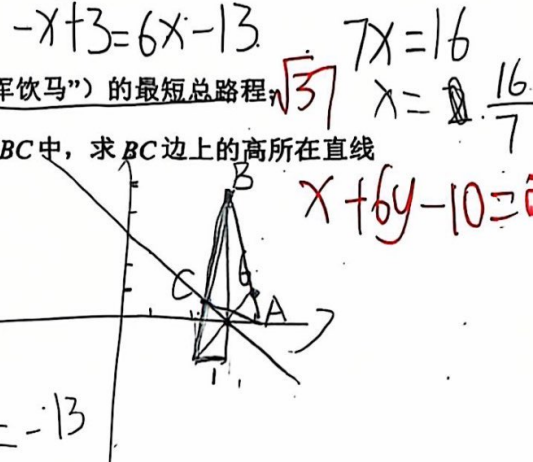 -x+3=6x-13
7x=16
军饮马”）的最短总路程 √37
x= 16/7
BC中，求BC边上的高所在直线
x+6y-10=0
B
6
C
A
1
=-13